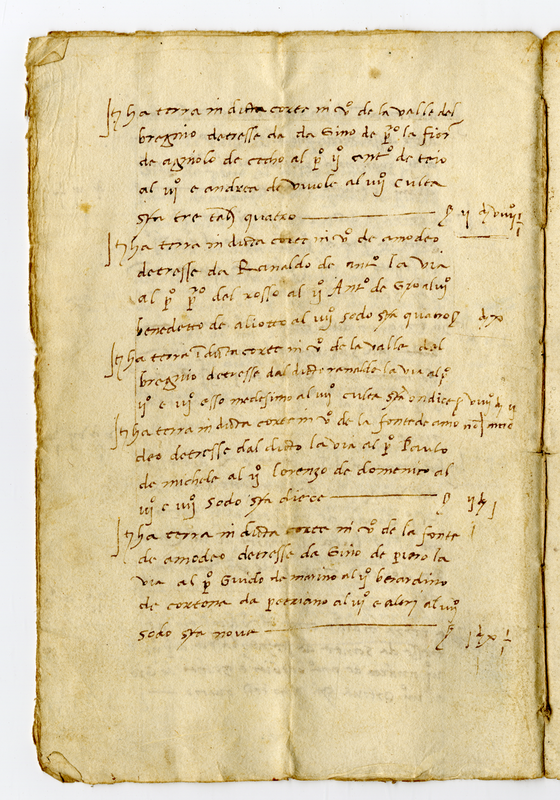 It ha terra in dicta corte in vo de la valle del
bregnio detresse da da Gino de po la fior
de agniolo de cecho al po ii anto de teio
al iii e andrea de vivole al iiii culta
sta tre tab quatro
It ha terra in dicta corte in vo de amodeo
detresse da Ranaldo de anto la via
al po po del rosso al ii Anto de Gio al iii
benedetto de aliotto al iiii sodo sta quatro
It ha terra i dicta corte in vo de la valle del
bregnio detresse dal dicto ranaldo la via al po
ii e iii esso medesimo al iiii culta sta ondice
It ha terra in dicta corte in vo de la fonte de amo
deo detresse dal dicto la via al po Pauto
de michele al ii lorenzo de domenico al
iii e iiii sodo sta diece
It ha terra in dicta corte in vo de la fonte
de amodeo detresse da Gino de piero la
via al po Guido de marino al ii berardino
de cortona da petriano al iii e altri al iiii
sodo sta nove